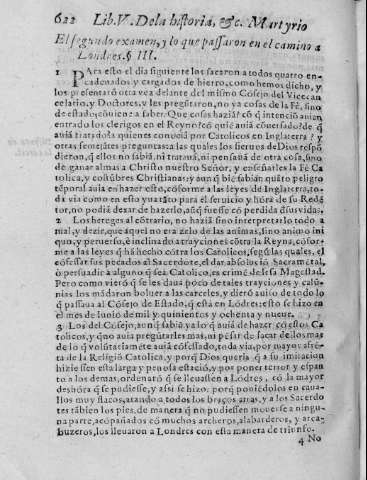 622 Lib. V. De la historia, &c. Martyrio
El segundo examen, y lo que passaron en el camino a
Londres. § III.
1 Para esto el dia siguiente los sacaron a todos quatro en-
cadenados y cargados de hierro, como hemos dicho, y
los presentarõ otra vez delante del mismo Cõsejo del Vicecan
celario, y Doctores, y les pregũtaron, no ya cosas de la Fè, sino
de estado; conuiene a saber: Que cosas haziã? cõ q̃ intenciõ auiã
entrado los clerigos en el Reyno? cõ quiẽ auiã cõuersado? de q̃
auiã tratado? a quienes conociã por Catolicos en Inglaterra? y
otras semejãtes preguntas a las quales los sieruos de Dios respõ
dieron, q̃ ellos no sabiã, ni tratauã, ni pensauã de otra cosa, sino
de ganar almas a Christo nuestro Señor, y enseñarles la Fè Ca
tolica, y costũbres Christianas: y aunq̃ biẽ sabiã quãto peligro
tẽporal auia en hazer esto, cõforme a las leyes de Inglaterra, to-
da via como en esto yuã tãto para el seruicio y hõra de su Redẽ
tor, no podiã dexar de hazerlo, aũq̃ fuesse cõ perdida d̃ sus vidas.
2 Los hereges al cõtrario, no hazã sino interpretarlo todo a
mal, y dezir, que aquel no era zelo de las animas, sino animo ini
quo, y peruerso, è inclinado a trayciones cõtra la Reyna, cõfor-
me a las leyes q̃ hã hecho cõtra los Catolicos, segũ las quales, el
cõfessar sus pecados al Sacerdote, el dar absoluciõ Sacramẽtal,
ò persuadir a alguno q̃ sea Catolico, es crimẽ de lesa Magestad.
Pero como vierõ q̃ se les daua poco de tales trayciones y calũ-
nias, los mãdaron boluer a las carceles, y dierõ auiso de todo lo
q̃ passaua al Cõsejo de Estado, q̃ està en Lõdres; esto se hizo en
el mes de Iunio de mil y quinientos y ochenta y nueue.
3 Los del Cõsejo, aunq̃ sabiã ya lo q̃ auiã de hazer cõ estos Ca
tolicos, y q̃ no auia pregũtarles mas, ni pẽsar de sacar de los mas
de lo q̃ volũtariamẽte auiã cõfessado, toda via, por mayor afrẽ-
ta de la Religiõ Catolica, y porq̃ Dios queria q̃ a su imitacion
hiziessen esta larga y penosa estaciõ, y por poner terror y espan
to a los demas, ordenarõ q̃ se lleuassen a Lõdres, cõ la mayor
deshõra q̃ se pudiesse, y assi se hizo; porq̃ poniẽdolos en caua-
llos muy flacos, atando a todos los braços atras, y a los Sacerdo
tes tãbien los pies, de manera q̃ no pudiessen mouerse a ningu-
na parte, acõpañados cõ muchos archeros, alabarderos, y arca-
buzeros, los lleuaron a Londres con esta manera de triunfo.
4 No